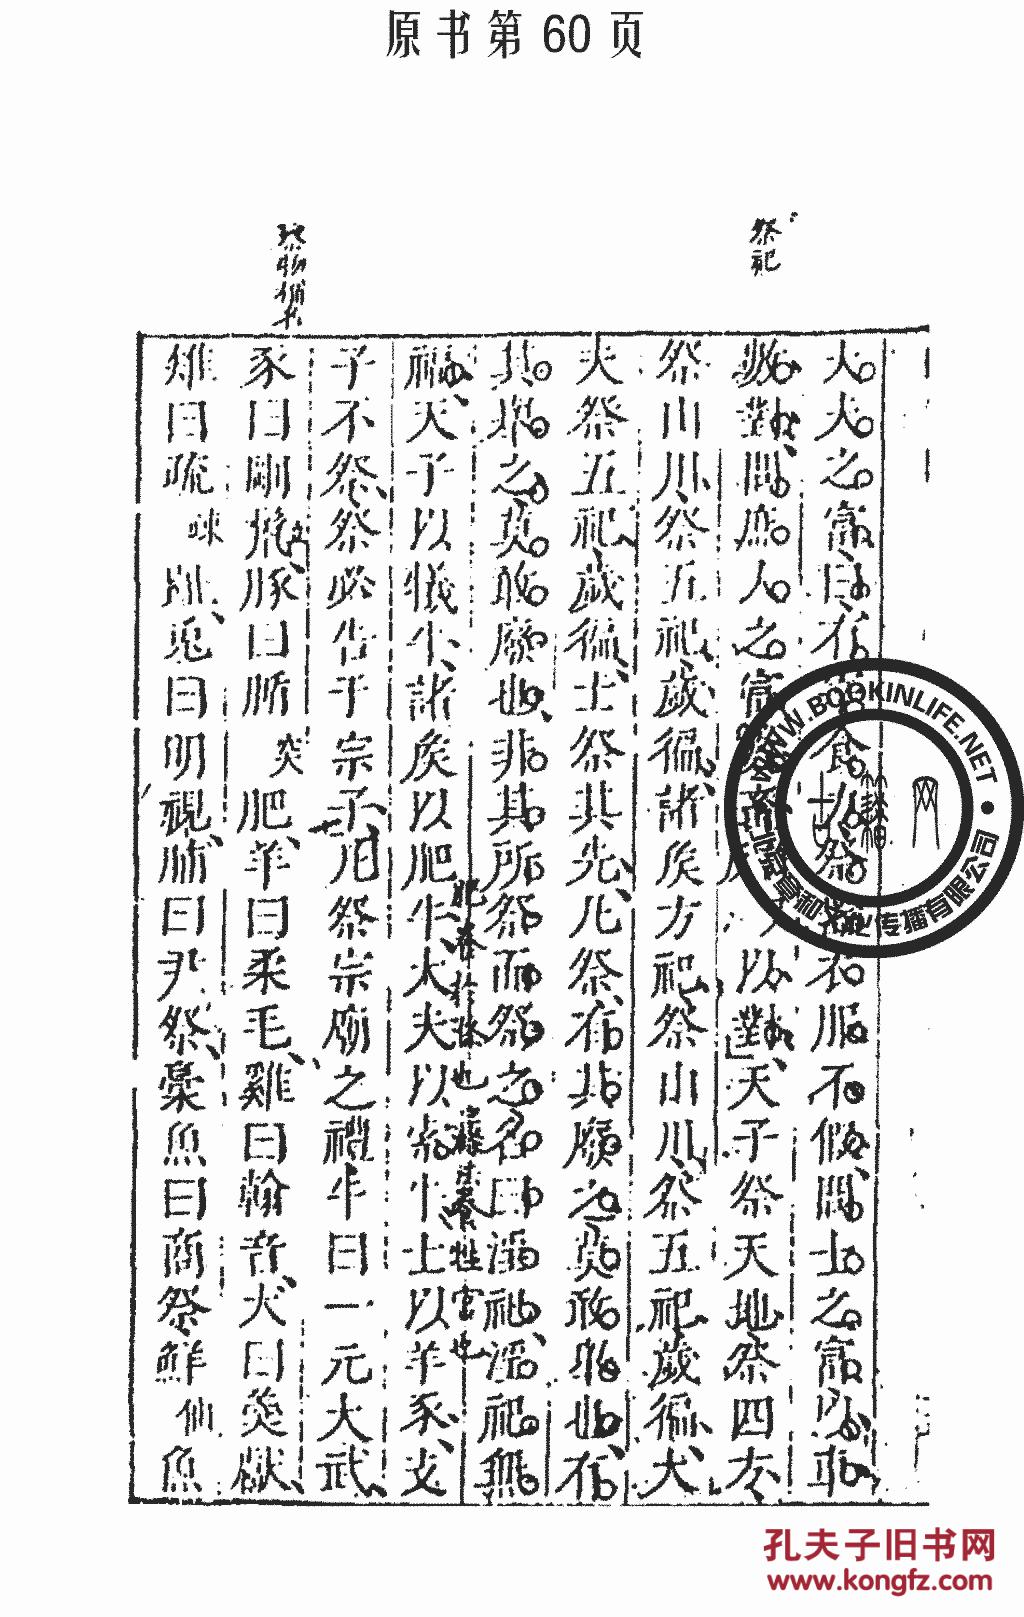 原书第60页
祭祀
祭物
大夫之富曰有宰食力祭器衣服不假問士之富以車
數對問庶人之富數畜以對天子祭天地祭四方
祭山川祭五祀歲徧諸侯方祀祭山川祭五祀歲徧大
夫祭五祀歲徧士祭其先凡祭有其廢之莫敢舉也有
其舉之莫敢廢也非其所祭而祭之名曰淫祀淫祀無
福天子以犧牛諸侯以肥牛大夫以索牛士以羊豕支
肥養於滌也
養牲官也
子不祭祭必告于宗子凡祭宗廟之禮牛曰一元大武
豕曰剛鬣豚曰腯肥羊曰柔毛雞曰翰音犬曰羹獻
突
雉曰疏趾兔曰明視脯曰尹祭槀魚曰商祭鮮魚
仙
WWW.BOOKINLIFE.NET
传播有限公司
孔夫子旧书网
www.kongfz.com